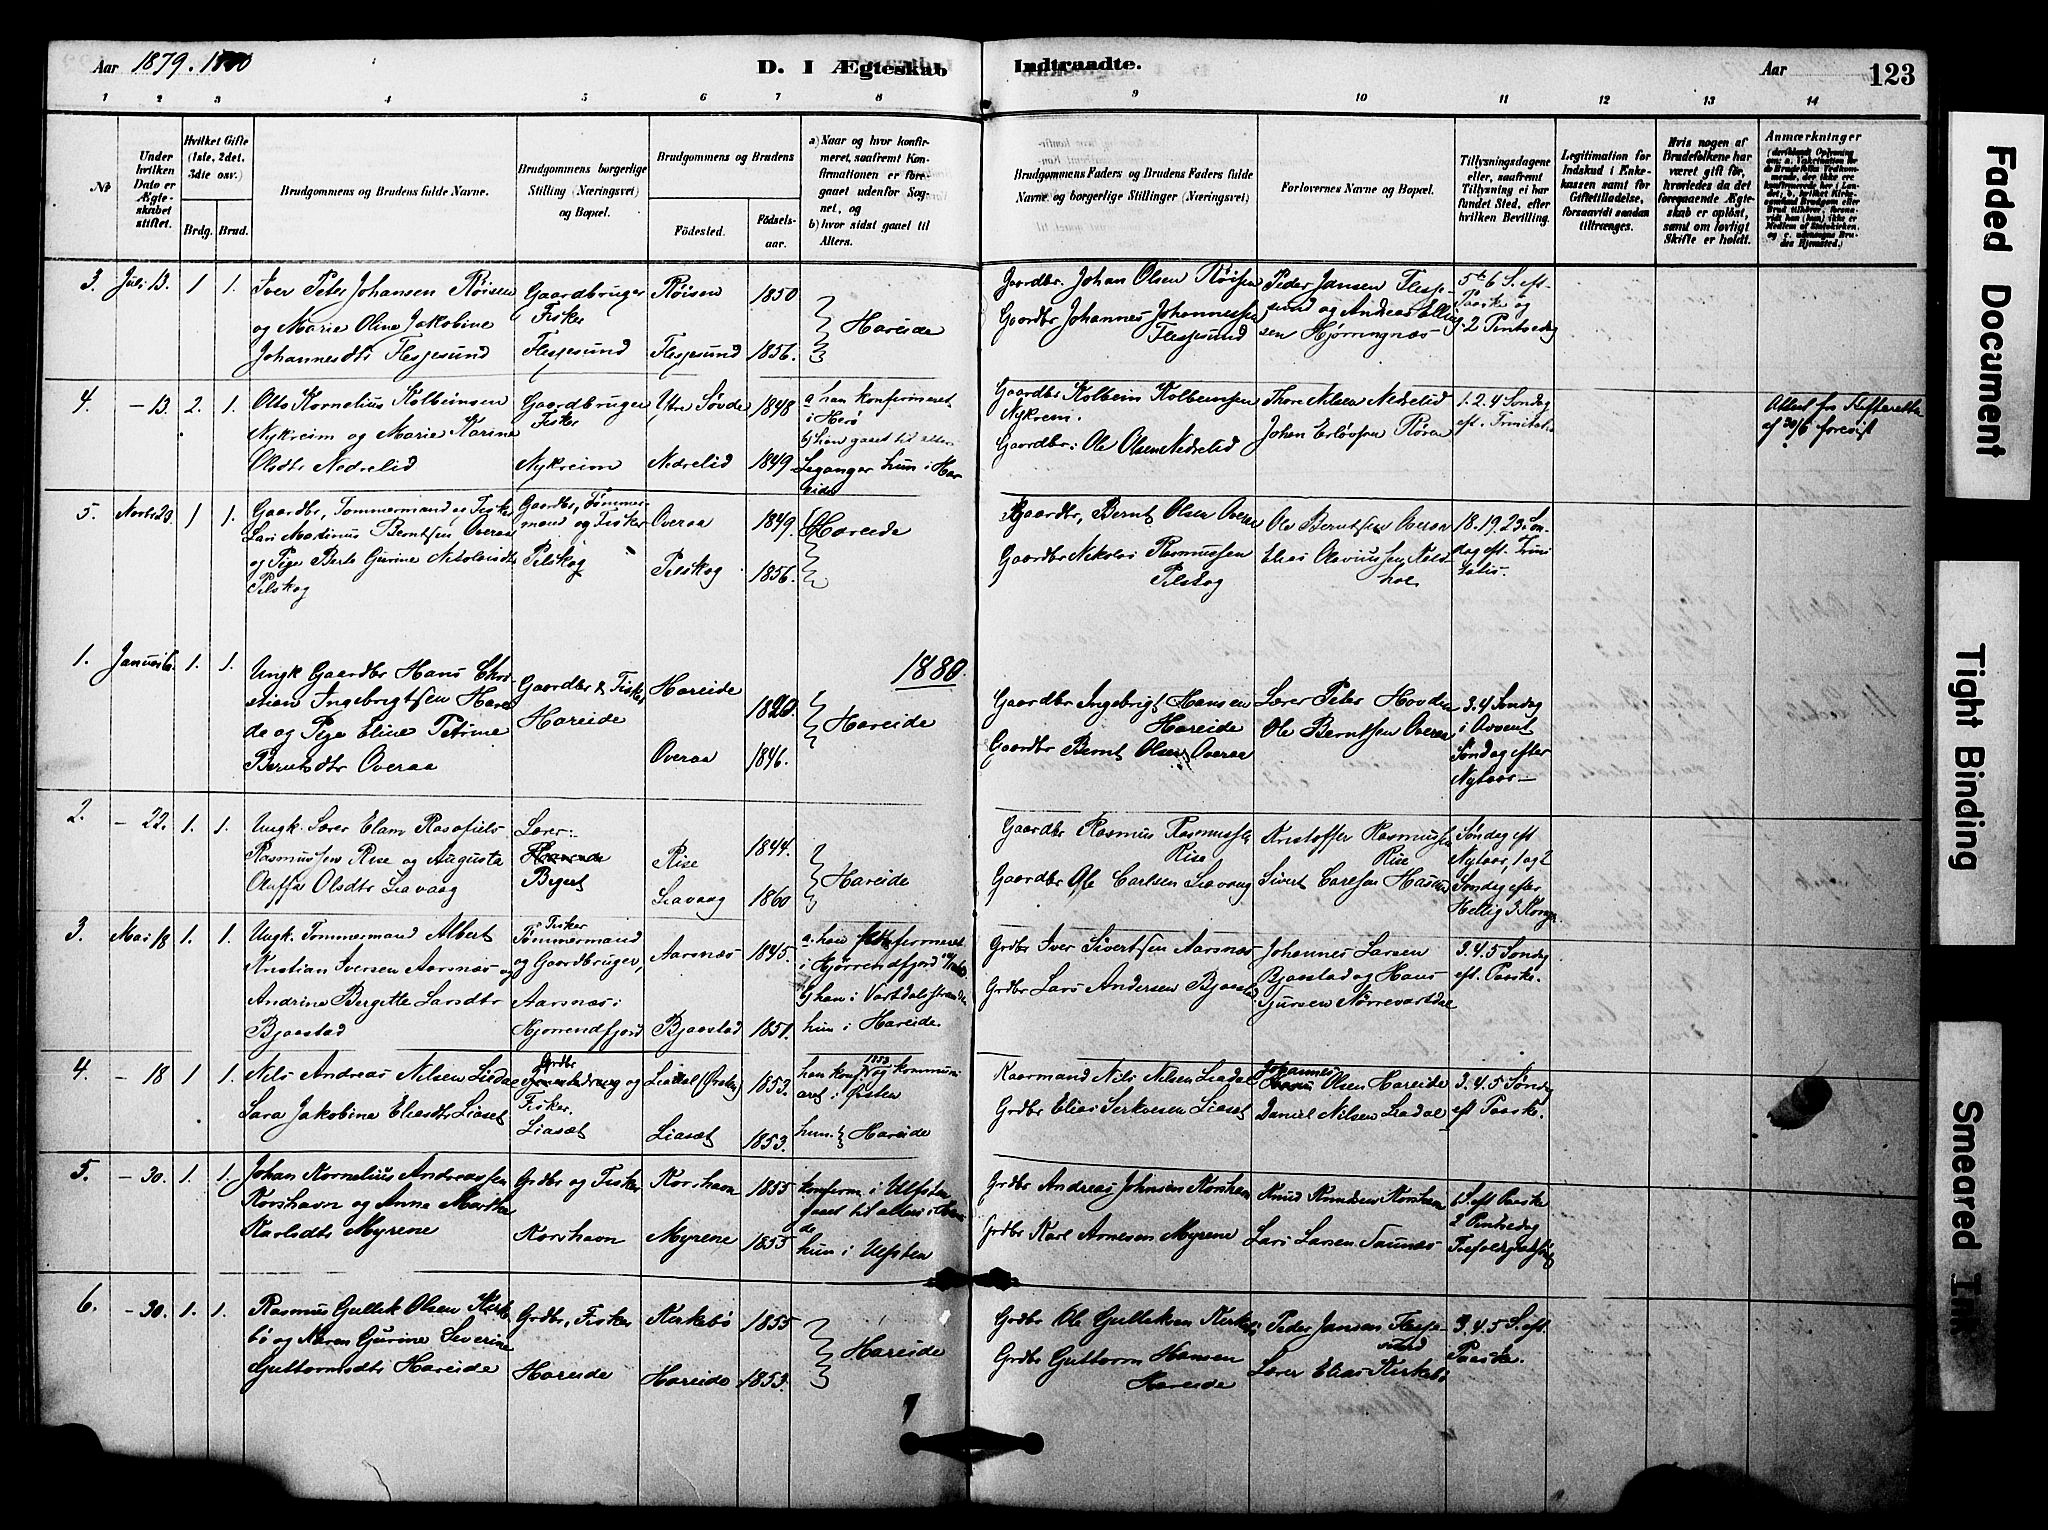 Aar 1879. 1880
D. I Ægteskab Indtraadte.
Aar 123
1 2 3 4 5 6 7 8 9 10 11 12 13 14
No
Under hvilken Dato er Ægteskabet stiftet.
Hvilket Gifte (1ste, 2det, 3dte osv.)
Brdg. Brud.
Brudgommens og Brudens fulde Navne.
Brudgommens borgerlige Stilling (Næringsvei) og Bopæl.
Brudgommens og Brudens
Födested.
Födselsaar.
a) Naar og hvor konfirmeret, saafremt Konfirmationen er foregaaet udenfor Sognet, og
b) hvor sidst gaaet til Alters.
Brudgommens Faders og Brudens Faders fulde Navne og borgerlige Stillinger (Næringsvei)
Forlovernes Navne og Bopæl.
Tillysningsdagene eller, saafremt Tillysning ei har fundet Sted, efter hvilken Bevilling.
Legitimation for Indskud i Enkekassen samt for Giftetilladelse, forsaavidt saadan tiltrænges.
Hvis nogen af Brudefolkene har været gift før, hvorledes da det foregaaende Ægteskab er oplöst, samt om lovligt Skifte er holdt.
Anmærkninger
3. Juli 13. 1 1.
Iver Peter Johansen Röisen
og Marie Oline Jakobine
Johannesdtr Flesjesund
Gaardbruger
Fisker
Flesjesund
Röisen 1850
Flesjesund 1856.
Hareide
Gaardbr. Johan Olsen Röisen
Gaardbr Johannes Johannessen
Flesjesund
Peder Jansen Flesje-
sund og Andreas Elling-
sen Hjörringnæs
5te 6 S. eft.
Paaske og
2 Pintsedag
4. – 13. 2. 1.
Ole Kornelius Kolbeinsen
Nykreim og Marie Karine
Olsdtr Nedrelid
Gaardbruger
Fisker
Nykreim
Ytre Søvde 1848
Nedrelid 1849
a han konfirmeret
i Herö
b) han gaaet til alter
Leganger hun i Ha-
reide
Gaardbr Kolbein Kolbeinsen
Nykreim.
Gaardbr: Ole Olsen Nedrelid
Thore Nilsen Nedrelid
Johan Erlovsen Rören
1. 2. 4 Søndag
eft. Trinitatis
Attest fra Skifteretten
af 30/6 forevist
5. Novbr 23. 1 1.
Gaardbr, Tømmermand og Fisker
Lars Martinus Berntsen Overaa
og Pige Berte Gurine Nikolaidtr
Pilskog
Gaardbr, Tömmer-
mand og Fisker
Pilskog
Overaa 1849.
Pilskog 1856.
Hareide
Gaardbr, Bernt Olsen Overaa
Gaardbr Nikolai Rasmussen
Pilskog
Ole Berntsen Overaa
18. 19. 23. Søn-
dag eft. Trini-
tatis.
1880.
1. Januar 6. 1. 1.
Ungk Gaardbr Hans Chri-
stian Ingebrigtsen Harei-
de og Pige Eline Petrine
Berntsdtr Overaa
Gaardbr & Fisker
Hareide
Hareide
Overaa 1846.
Hareide
Gaardbr Ingebrigt Hansen
Hareide
Gaardbr Bernt Olsen Overaa
Lærer Peter Hovden
Ole Berntsen Overaa
3. 4 Søndag
i Advent
Søndag efter
Nytaar –
2. – 22. 1. 1.
Ungk. Lærer Elam
Rasmussen Rise og Augusta
Oluffa Olsdtr Liavaag
Lærer.
Rise 1844.
Liavaag 1860
Hareide
Gaardbr Rasmus Rasmussen
Rise
Gaardbr Ole Carlsen Liavaag
Kristoffer Rasmussen
Rise
Sivert
Søndag eft
Nytaar, 1 og 2
Søndag efter
Hellig 3 Konge
3. Mai 18 1. 1.
Ungk. Tømmermand Albert
Kristian Iversen Aarsnæs og
Andrine Bergitte Larsdtr
Bjaastad
Fisker
Tömmermand
og Gaardbruger,
Aarsnæs i
Hjörrendfjord
Aarsnæs 1845.
Bjaastad 1851.
a. han konfirmeret
i Hjörrendfjord
b han i Vartdalsstranden
hun i Hareide.
Grdbr Iver Sivertsen Aarsnæs
Grdbr Lars Andersen Bjaastad
Johannes Larsen
Bjaastad og Hans
Sjursen Nörrevartdal
3. 4. 5 Søndag
eft. Paaske.
4. – 18 1 1.
Nils Andreas Nilsen Liadal
Sara Jakobine Eliasdtr Liaset
Grdbr
og
Fisker.
Liasæt
Liadal (Örsten) 1853.
Liasæt 1853.
han konf. og kommuni-
ceret i Örsten
hun Hareide
Kaarmand Nils Nilsen Liadal
Grdbr Elias Liaset
Johannes Olsen Hareide
Daniel Nilsen Liadal
3. 4. 5 Sønd
eft Paaske.
5. – 30. 1. 1.
Johan Kornelius Andreassen
Korshavn og Anne Marthe
Karlsdtr Myrene
Grdbr og Fisker
Korshavn
Korshavn 1855
Myrene 1855
konfirm. i Ulfsten
gaaet til alters i Harei-
de
hun i Ulfsten
Grdbr Andreas Johnsen Korshavn
Grdbr Karl Arnesen Myrene
Knud Knudsen Korshavn
Lars Larsen
1 S. eft Paaske
2 Pintsedag
6. – 30. 1. 1.
Rasmus Gullik Olsen Kirke-
bö og Maren Gurine Severine
Guttormsdtr Hareide
Grdbr, Fisker
Hareide
Kirkebö 1855
Hareide 1853.
Hareide
Grdbr Ole Gulliksen Kirkebö
Grdbr Guttorm Hansen
Hareide
Peder Jansen Flesje-
sund
Lærer Elias Kirkebö
3. 4. 5 S. eft.
Paaske.
Faded Document
Tight Binding
Smeared Ink